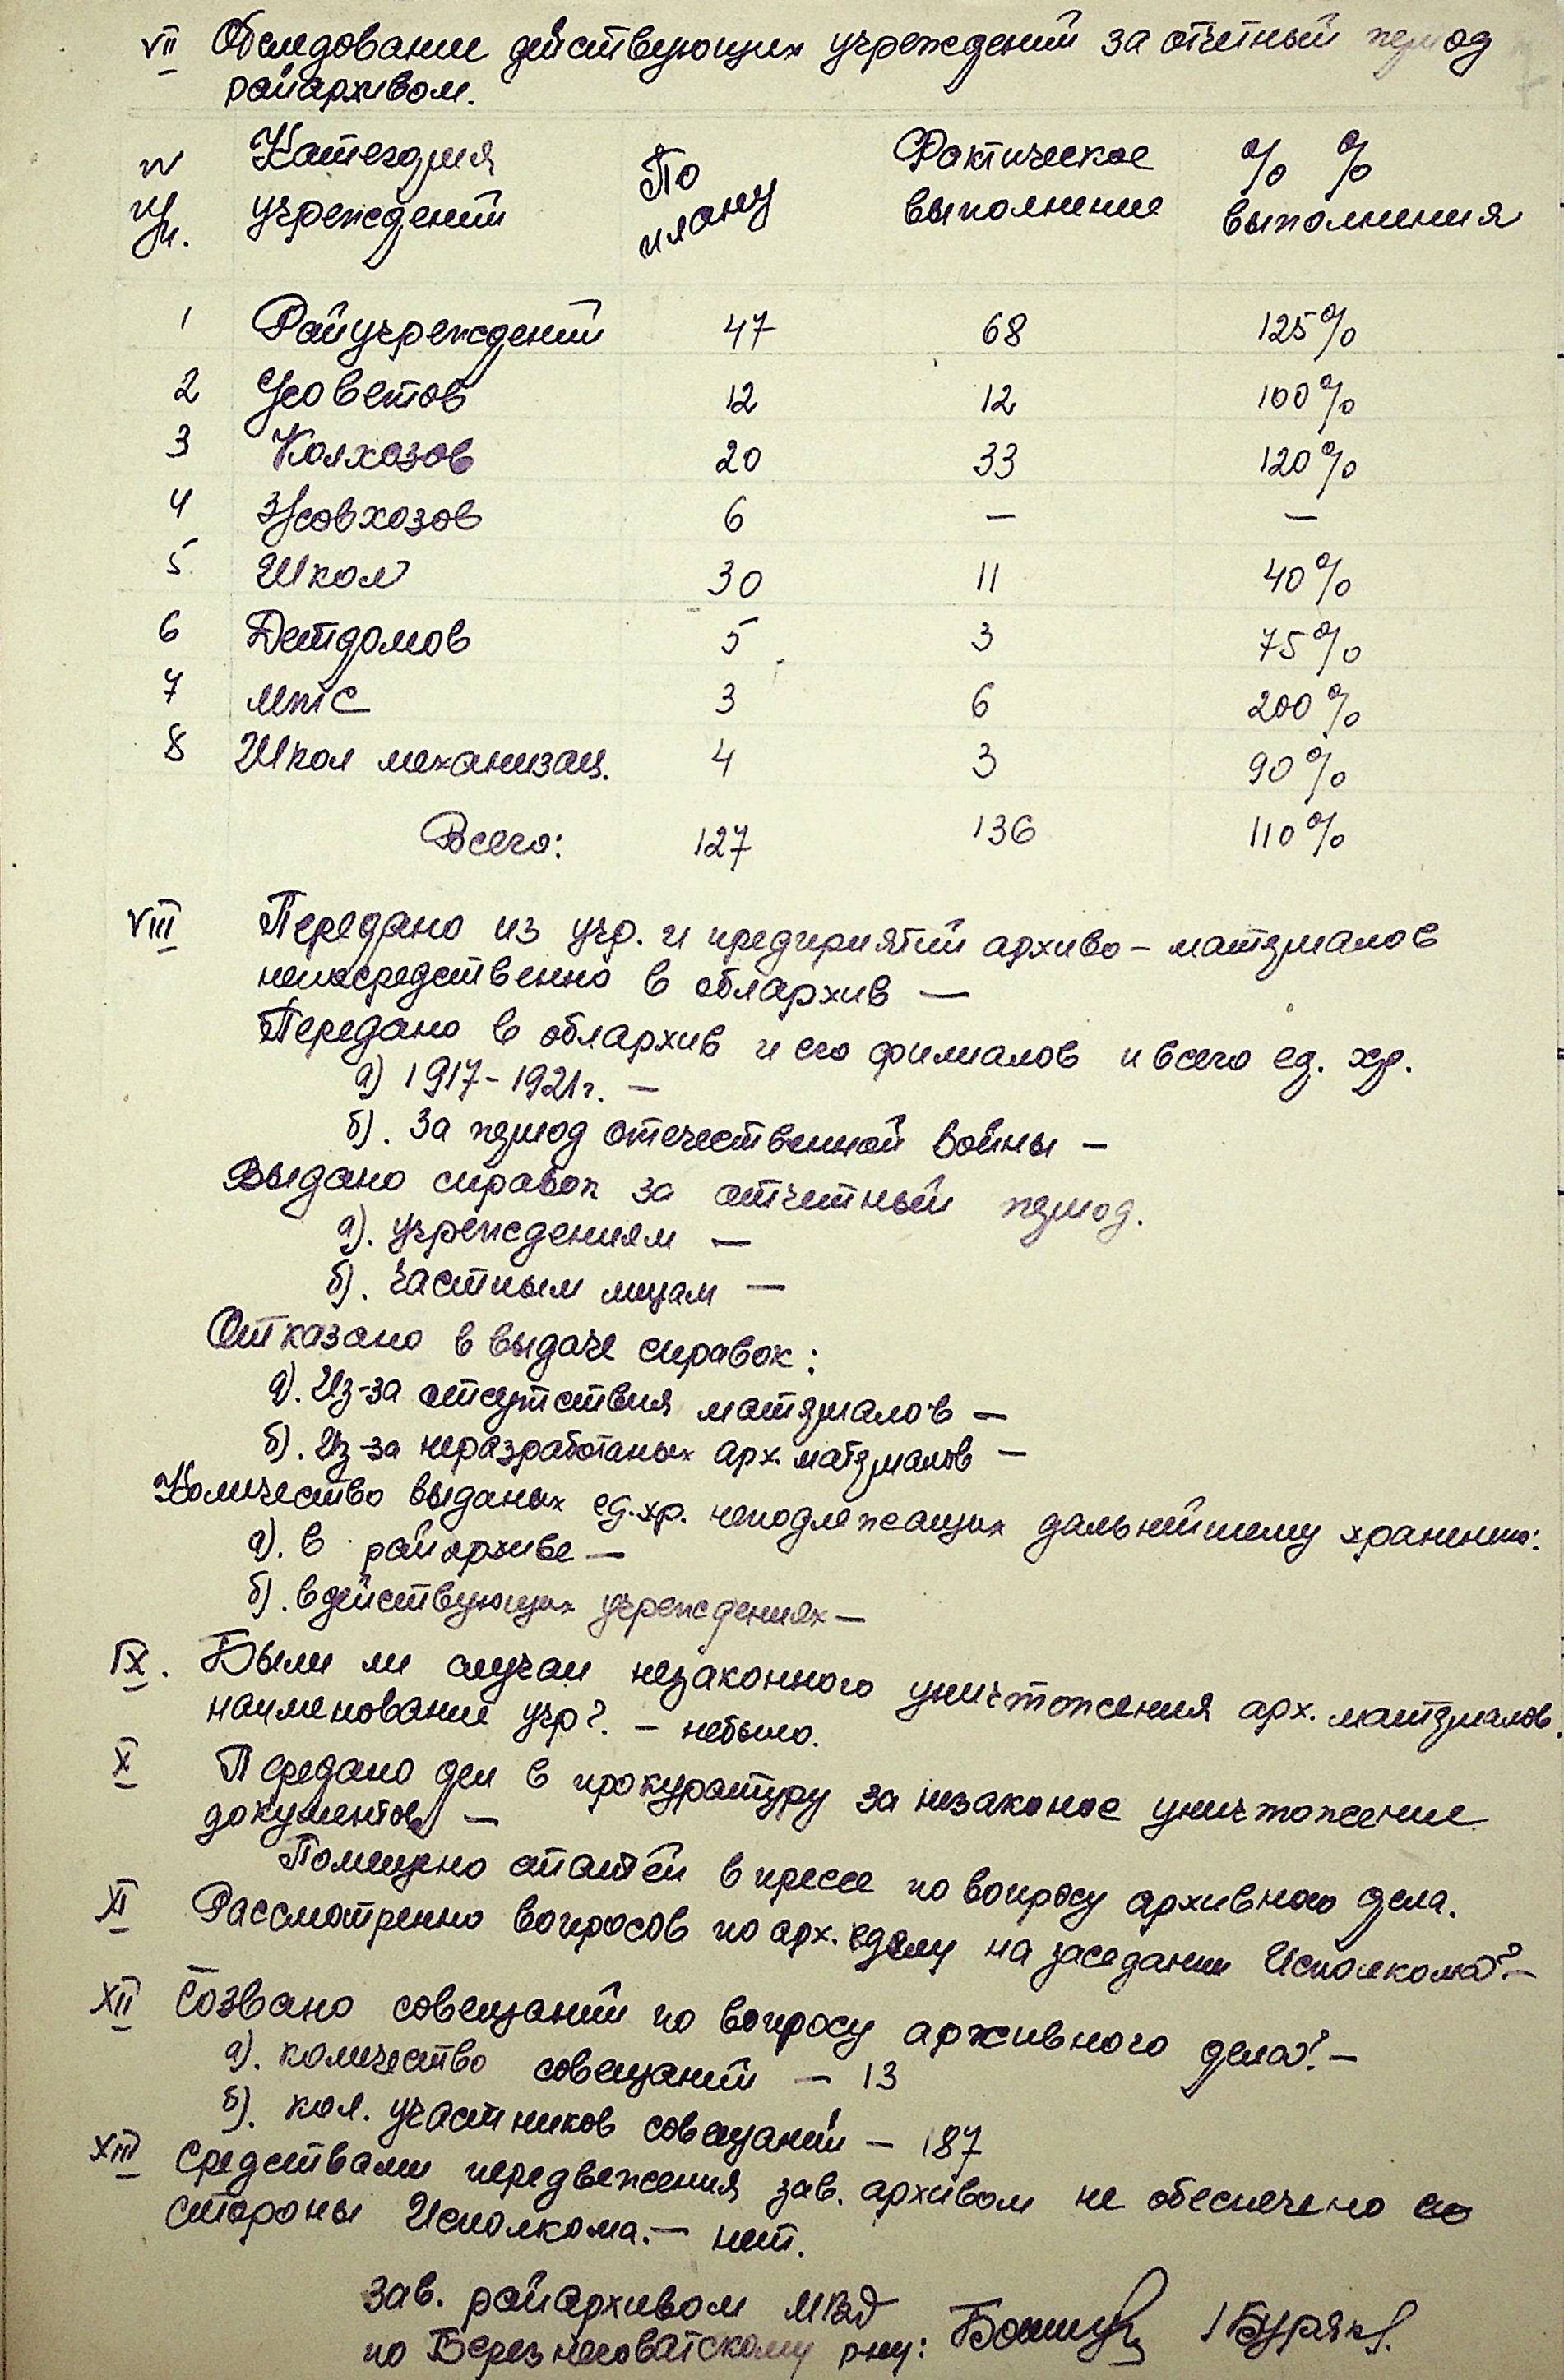 VII Обследование действующих учреждений за отчетный период
райархивом.
N Категория По Фактическое % %
п/п. учреждений плану выполнение выполнения
1 Райучреждений 47 68 125%
2 с/советов 12 12 100%
3 Колхозов 20 33 120%
4 з/совхозов 6 — —
5 Школ 30 11 40%
6 Детдомов 5 3 75%
7 МТС 3 6 200%
8 Школ механизац. 4 3 90%
Всего: 127 136 110%
VIII Передано из учр. и предприятий архиво-материалов
непосредственно в облархив —
Передано в облархив и его филиалов и всего ед. хр.
а) 1917-1921г. —
б). За период отечественной войны —
Выдано справок за отчетный период.
а). учреждениям —
б). частным лицам —
Отказано в выдаче справок:
а). Из-за отсутствия материалов —
б). Из-за неразработаных арх. материалов —
Количество выданых ед.хр. неподлежащих дальнейшему хранению:
а). в райархиве —
б). в действующих учреждениях —
IX. Были ли случаи незаконного уничтожения арх. материалов.
наименование учр?. — небыло.
X Передано дел в прокуратуру за незаконое уничтожение
документов —
Помещено статей в прессе по вопросу архивного дела.
XI Рассмотренно вопросов по арх. делу на заседании Исполкома? —
XII Созвано совещаний по вопросу архивного дела?. —
а). количество совещаний — 13
б). кол. участников совещаний — 187
XIII Средствами передвежения зав. архивом не обеспечено со
стороны Исполкома. — нет.
Зав. райархивом МВД
по Березнеговатскому р-ну: /Буряк/.